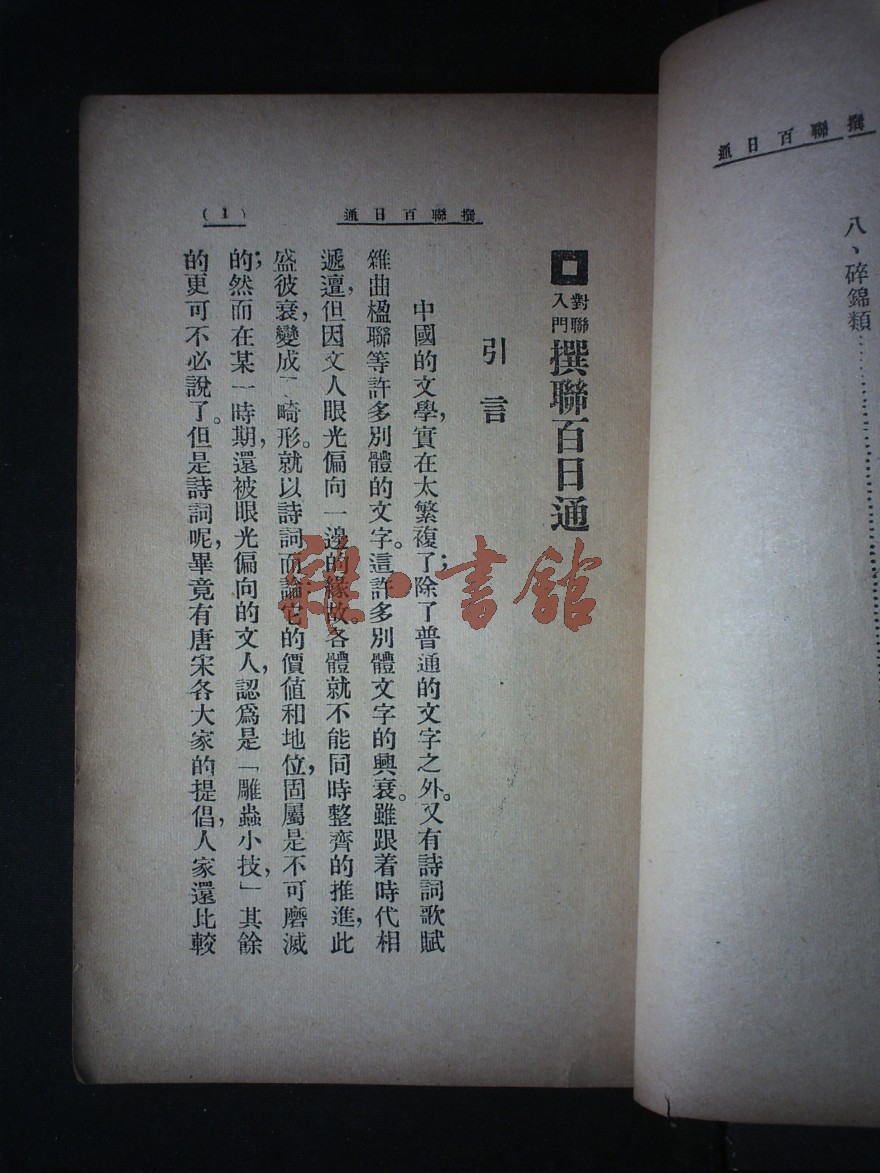 撰聯百日通
八、碎錦類……………
撰聯百日通
(1)
對聯入門 撰聯百日通
引言
中國的文學，實在太繁複了；除了普通的文字之外。又有詩詞歌賦
雜曲楹聯等許多別體的文字。這許多別體文字的興衰。雖跟着時代相
遞邅，但因文人眼光偏向一邊的緣故。各體就不能同時整齊的推進，此
盛彼衰，變成了畸形。就以詩詞而論，它的價値和地位，固屬是不可磨滅
的；然而在某一時期，還被眼光偏向的文人，認爲是「雕蟲小技，」其餘
的更可不必說了。但是詩詞呢，畢竟有唐宋各大家的提倡，人家還比較
雜·書館